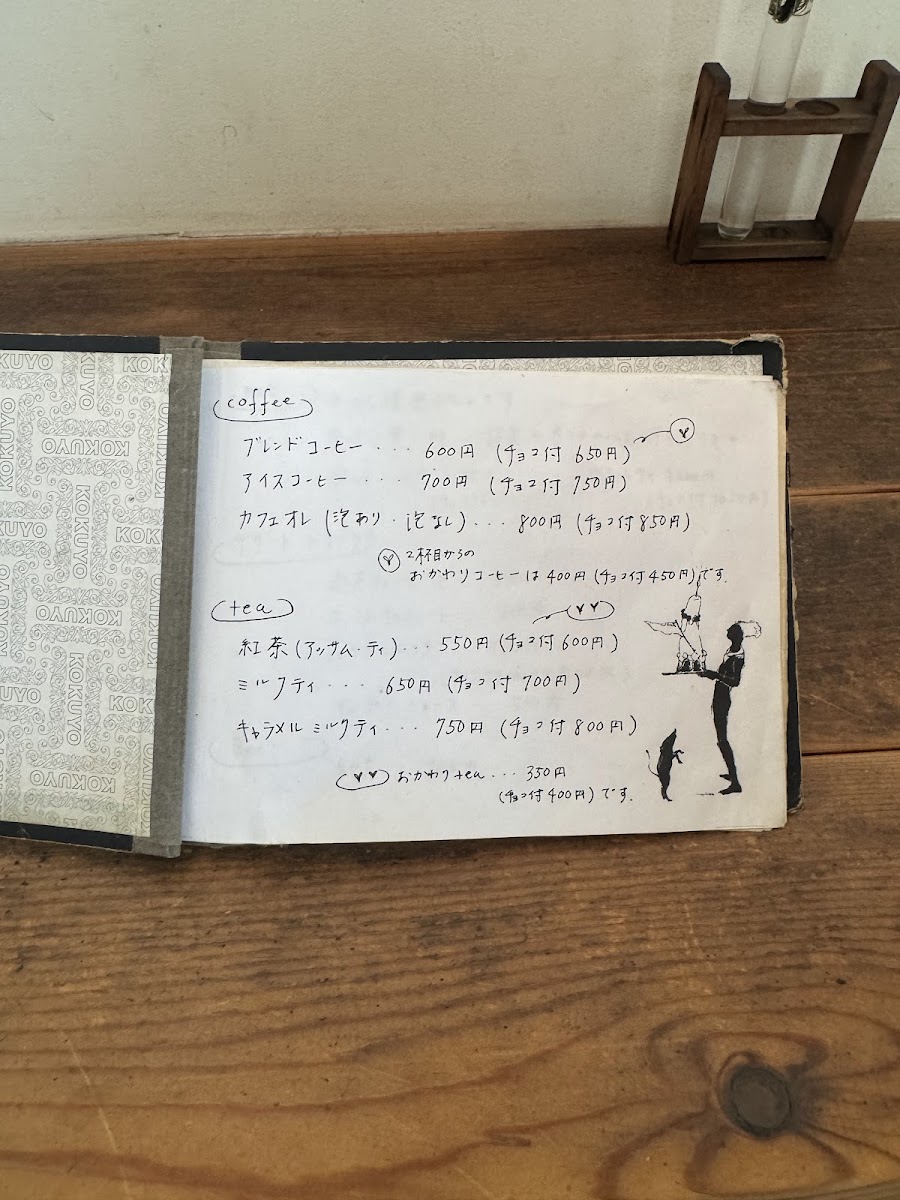 KUYO
KOKUYO
KOK
KOKUYO
KOKUYO
KOKUYO
KOK
KOKUYO
KOKUYO
KOKUYO
coffee
ブレンドコーヒー・・・ 600円 (チョコ付 650円)
アイスコーヒー・・・ 700円 (チョコ付 750円)
カフェオレ (泡あり・泡なし)・・・ 800円 (チョコ付850円)
2杯目からの
おかわりコーヒーは400円(チョコ付450円)です.
tea
紅茶(アッサム・ティ)・・・ 550円(チョコ付600円)
ミルクティ・・・ 650円 (チョコ付 700円)
キャラメルミルクティ・・・ 750円 (チョコ付800円)
おかわりtea・・・350円
(チョコ付400円)です.